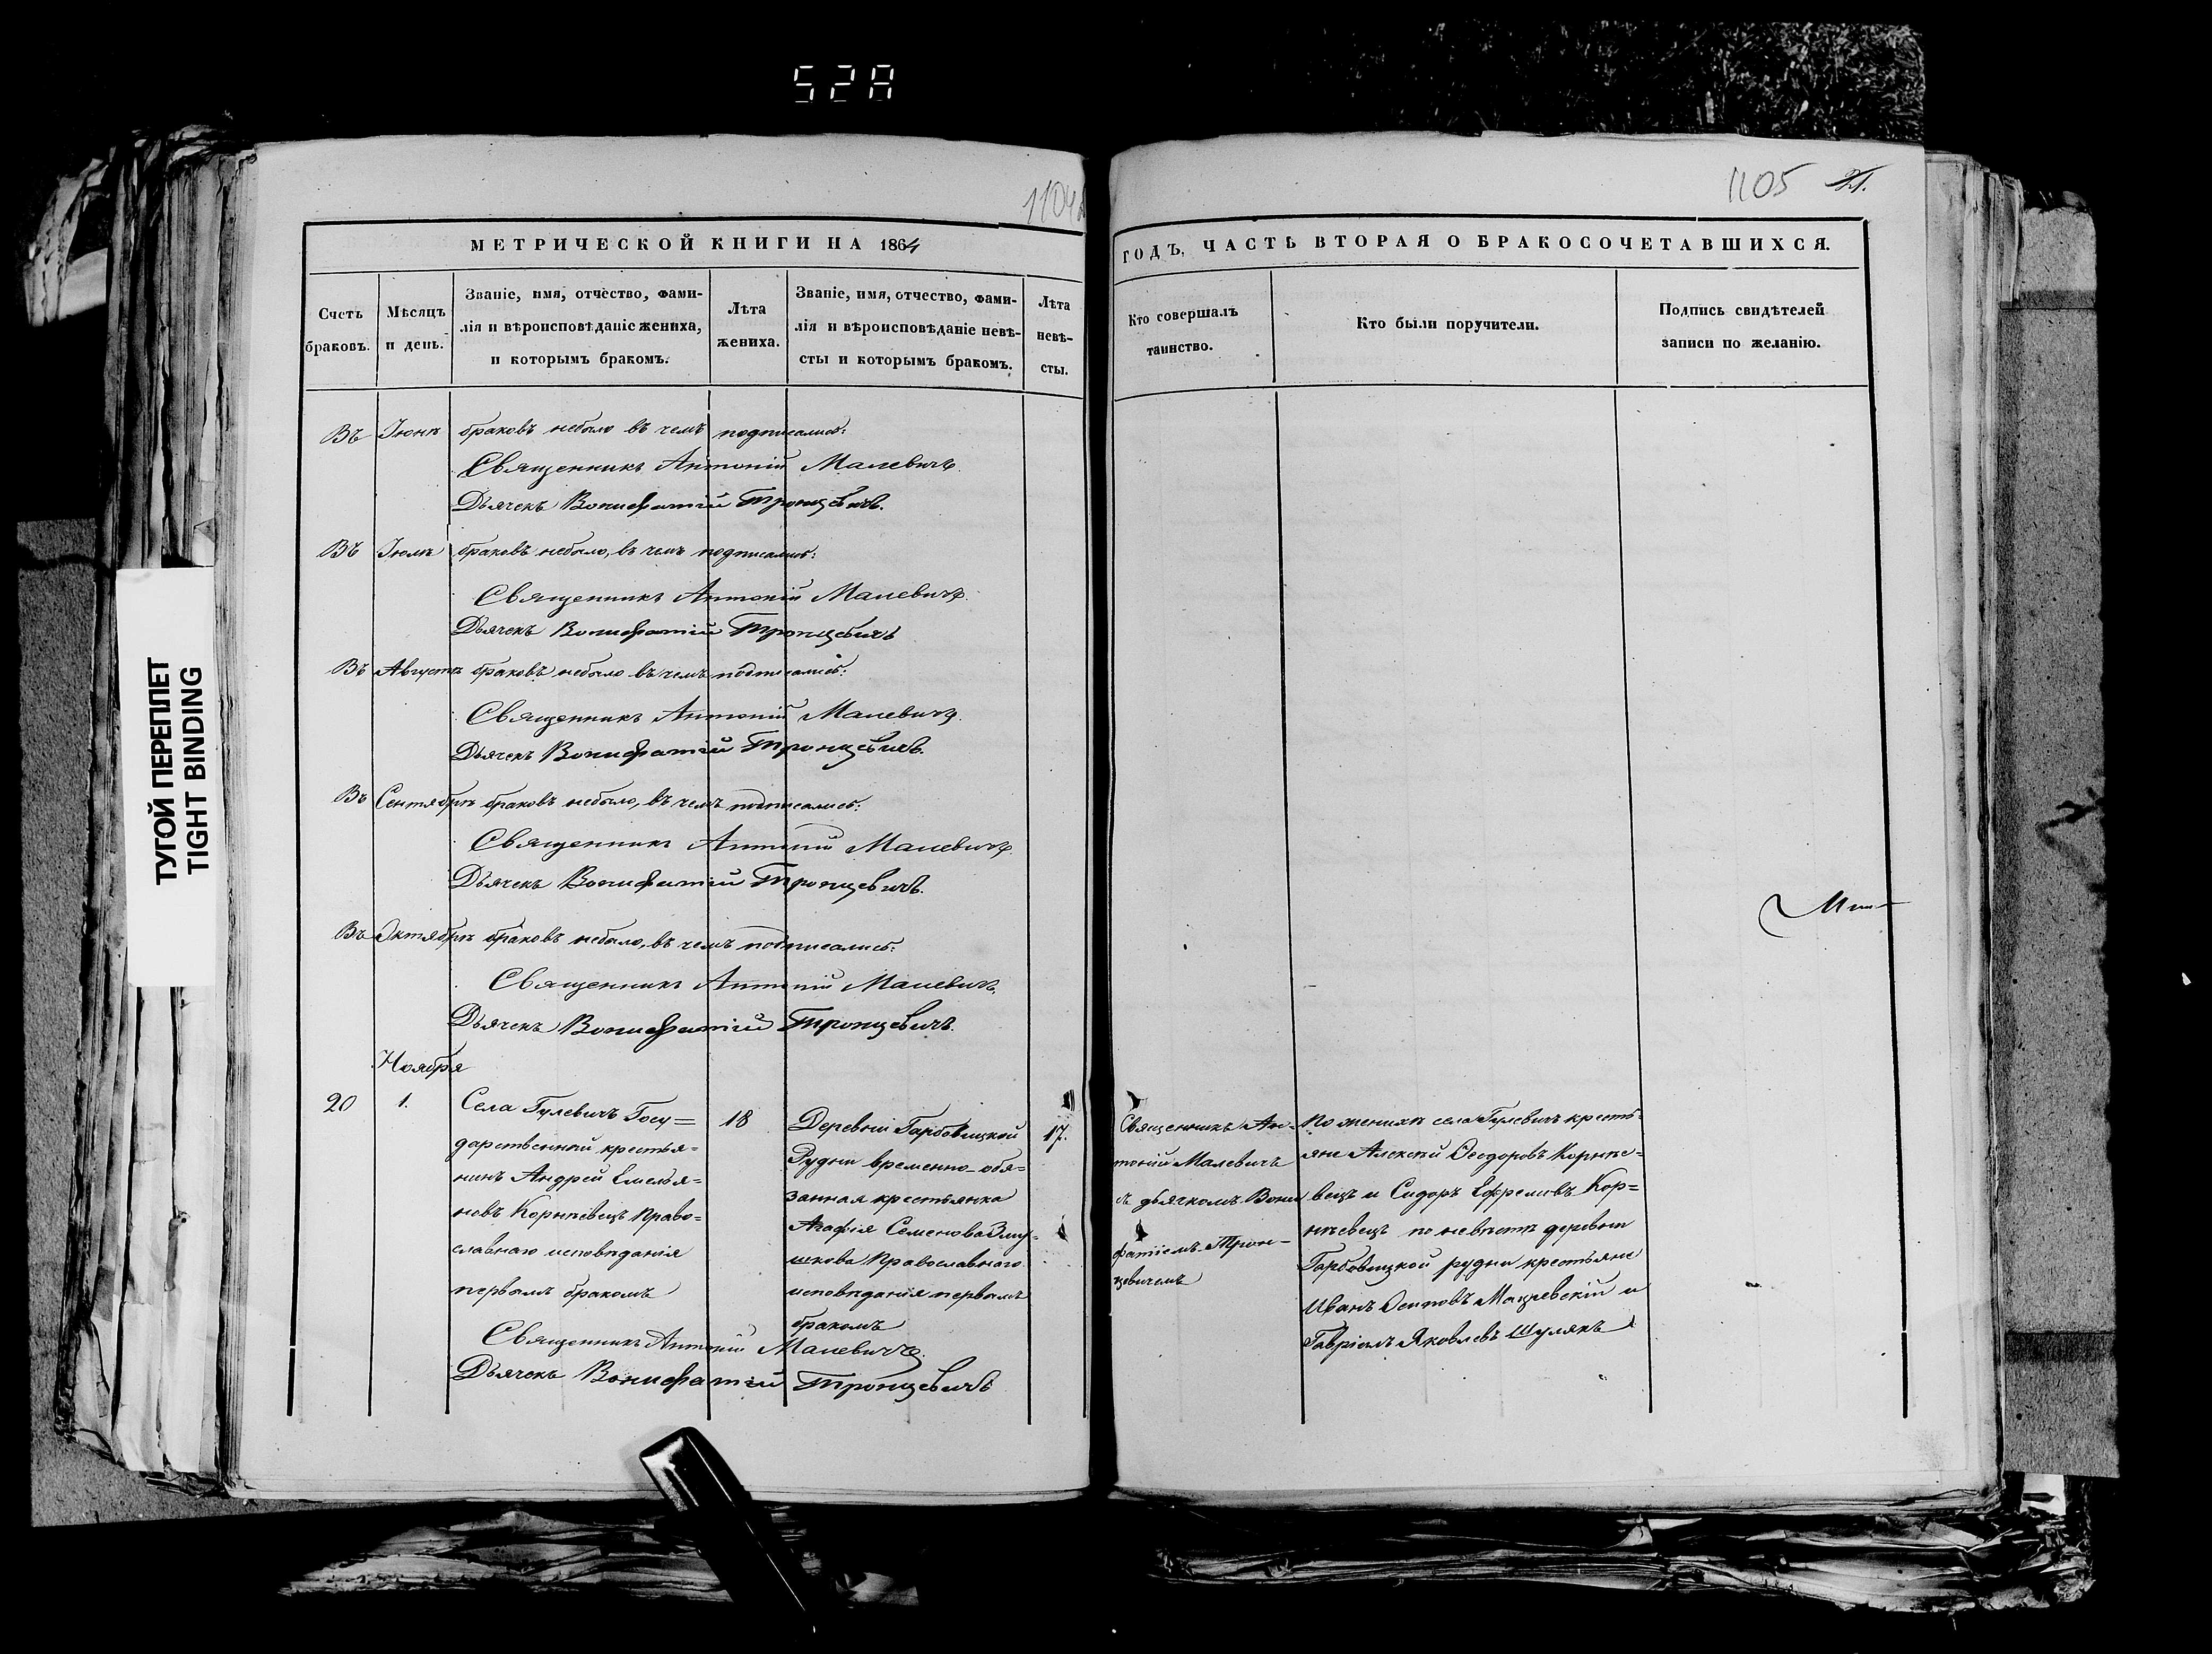 52A
1104
1105 21.
ТУГОЙ ПЕРЕПЛЕТ
TIGHT BINDING
МЕТРИЧЕСКОЙ КНИГИ НА 1864
ГОДЪ, ЧАСТЬ ВТОРАЯ О БРАКОСОЧЕТАВШИХСЯ.
Счетъ
браковъ.
Мѣсяцъ
и день.
Званіе, имя, отчество, фами-
лія и вѣроисповѣданіе жениха,
и которымъ бракомъ.
Лѣта
жениха.
Званіе, имя, отчество, фами-
лія и вѣроисповѣданіе невѣ-
сты и которымъ бракомъ.
Лѣта
невѣ-
сты.
Кто совершалъ
таинство.
Кто были поручители.
Подпись свидѣтелей
записи по желанію.
Въ Іюнѣ браковъ небыло въ чемъ подписались:
Священникъ Антоній Малевичъ.
Дьячекъ Вонифатій Тронцевичъ.
Въ Іюлѣ браковъ небыло, въ чемъ подписались:
Священникъ Антоній Малевичъ.
Дьячекъ Вонифатій Тронцевичъ
Въ Августѣ браковъ небыло въ чемъ подписались:
Священникъ Антоній Малевичъ.
Дьячекъ Вонифатій Тронцевичъ.
Въ Сентябрѣ браковъ небыло, въ чемъ подписались:
Священникъ Антоній Малевичъ.
Дьячекъ Вонифатій Тронцевичъ.
Въ Октябрѣ браковъ небыло, въ чемъ подписались:
Священникъ Антоній Малевичъ.
Дьячекъ Вонифатій Тронцевичъ.
Ноября
20 1.
Села Гулевичъ Госу=
дарственной крестья=
нинъ Андрей Емелья=
новъ Корнѣевецъ Право=
славнаго исповѣданія
первымъ бракомъ
18
Деревни Гарбовицкой
Рудни временно-обя=
занная крестьянка
Агафія Семенова
Православнаго
исповѣданія первымъ
бракомъ
17.
Священникъ Ан-
тоній Малевичъ
съ дьячкомъ Вони
фатіемъ Трон-
цевичемъ
По женихѣ села Гулевичъ кресть-
яне Алексѣй Ѳеодоровъ Корнѣе-
вецъ и Сидоръ Ефремовъ Кор=
нѣевецъ по невѣстѣ деревни
Гарбовицкой рудни крестьяне
Иванъ Осиповъ Мацревскій и
Гавріилъ Яковлевъ Шулякъ
Священникъ Антоній Малевичъ.
Дьячекъ Вонифатій Тронцевичъ